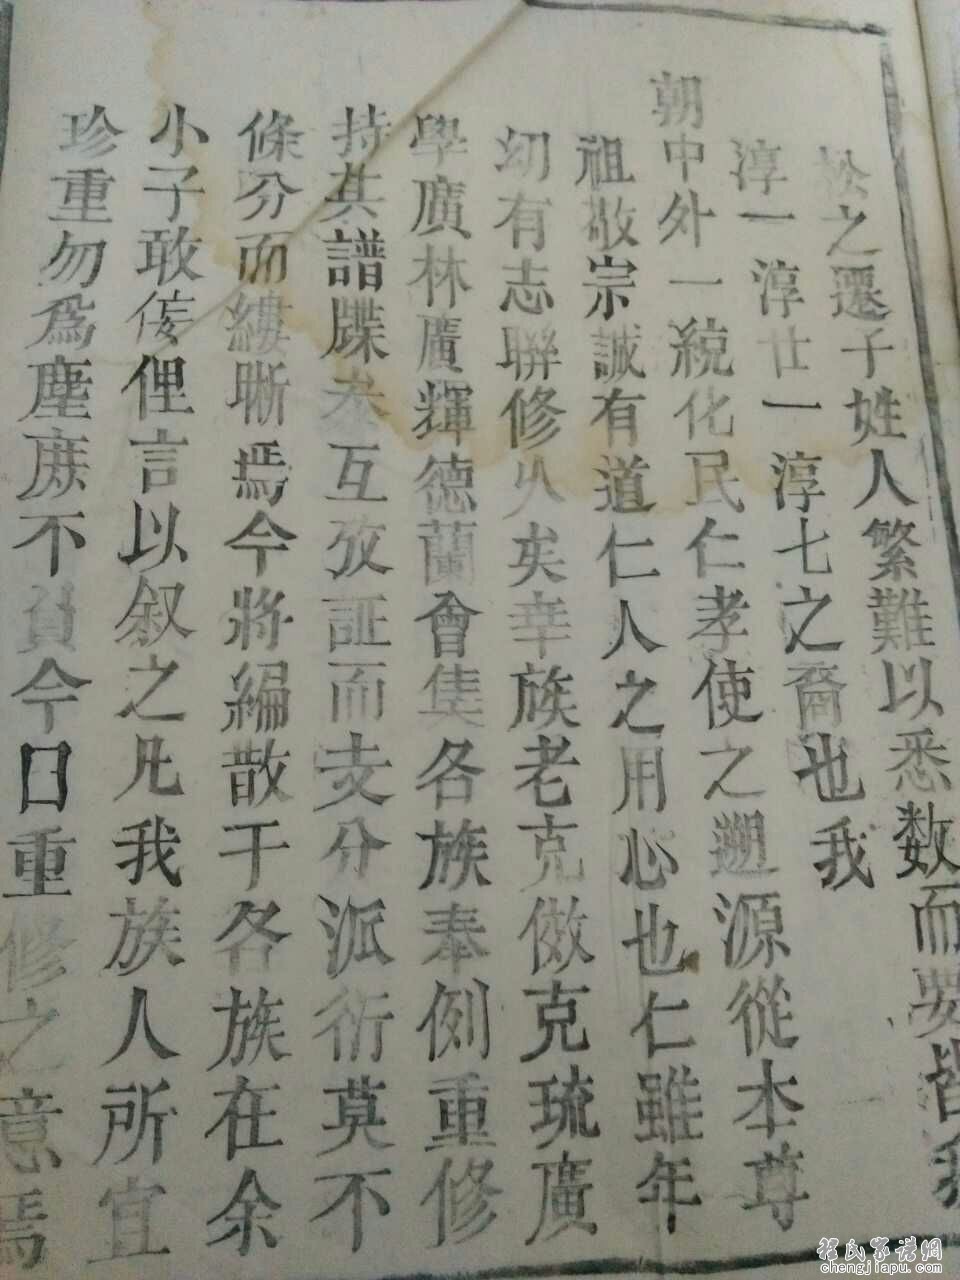 松之遷子姓人繁難以悉数而要皆我
淳一淳廿一淳七之裔也我
朝中外一統化民仁孝使之遡源從本尊
祖敬宗誠有道仁人之用心也仁雖年
幼有志聯修乆矣幸族老克倣克琉廣
學廣林廣輝德蘭會集各族奉例重修
持其譜牒叅互攷証而支分派衍莫不
條分而縷晰焉今將編散于各族在余
小子敢侫俚言以叙之凡我族人所宜
珍重勿爲塵庻不負今日重修之意焉
程氏家谱網
chengjiapu.com